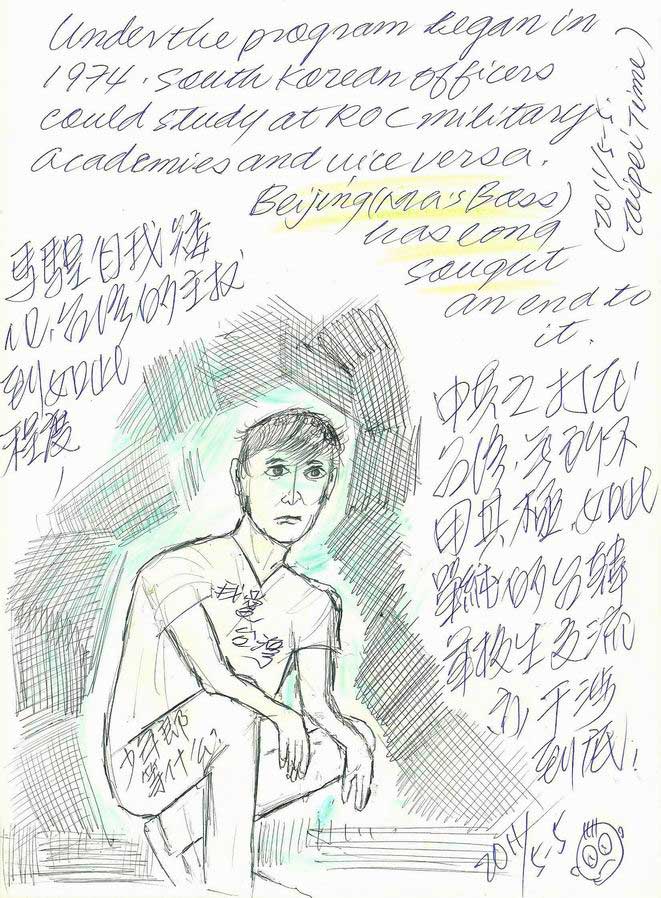 Under the program began in
1974. South Korean officers
could study at ROC military
academies and vice versa.
Beijing (Ma's Boss)
has long
sought
an end to
it.
(2011/5-5.
Taipei Time)
馬騜自我矮
化台灣的主权
到如此
程度,
中共之打壓
台灣,無所不
用其極,如此
單純的台韓
軍校生交流
也干涉
到底!
我愛
台灣
少年郎
等什么
2011/5-5